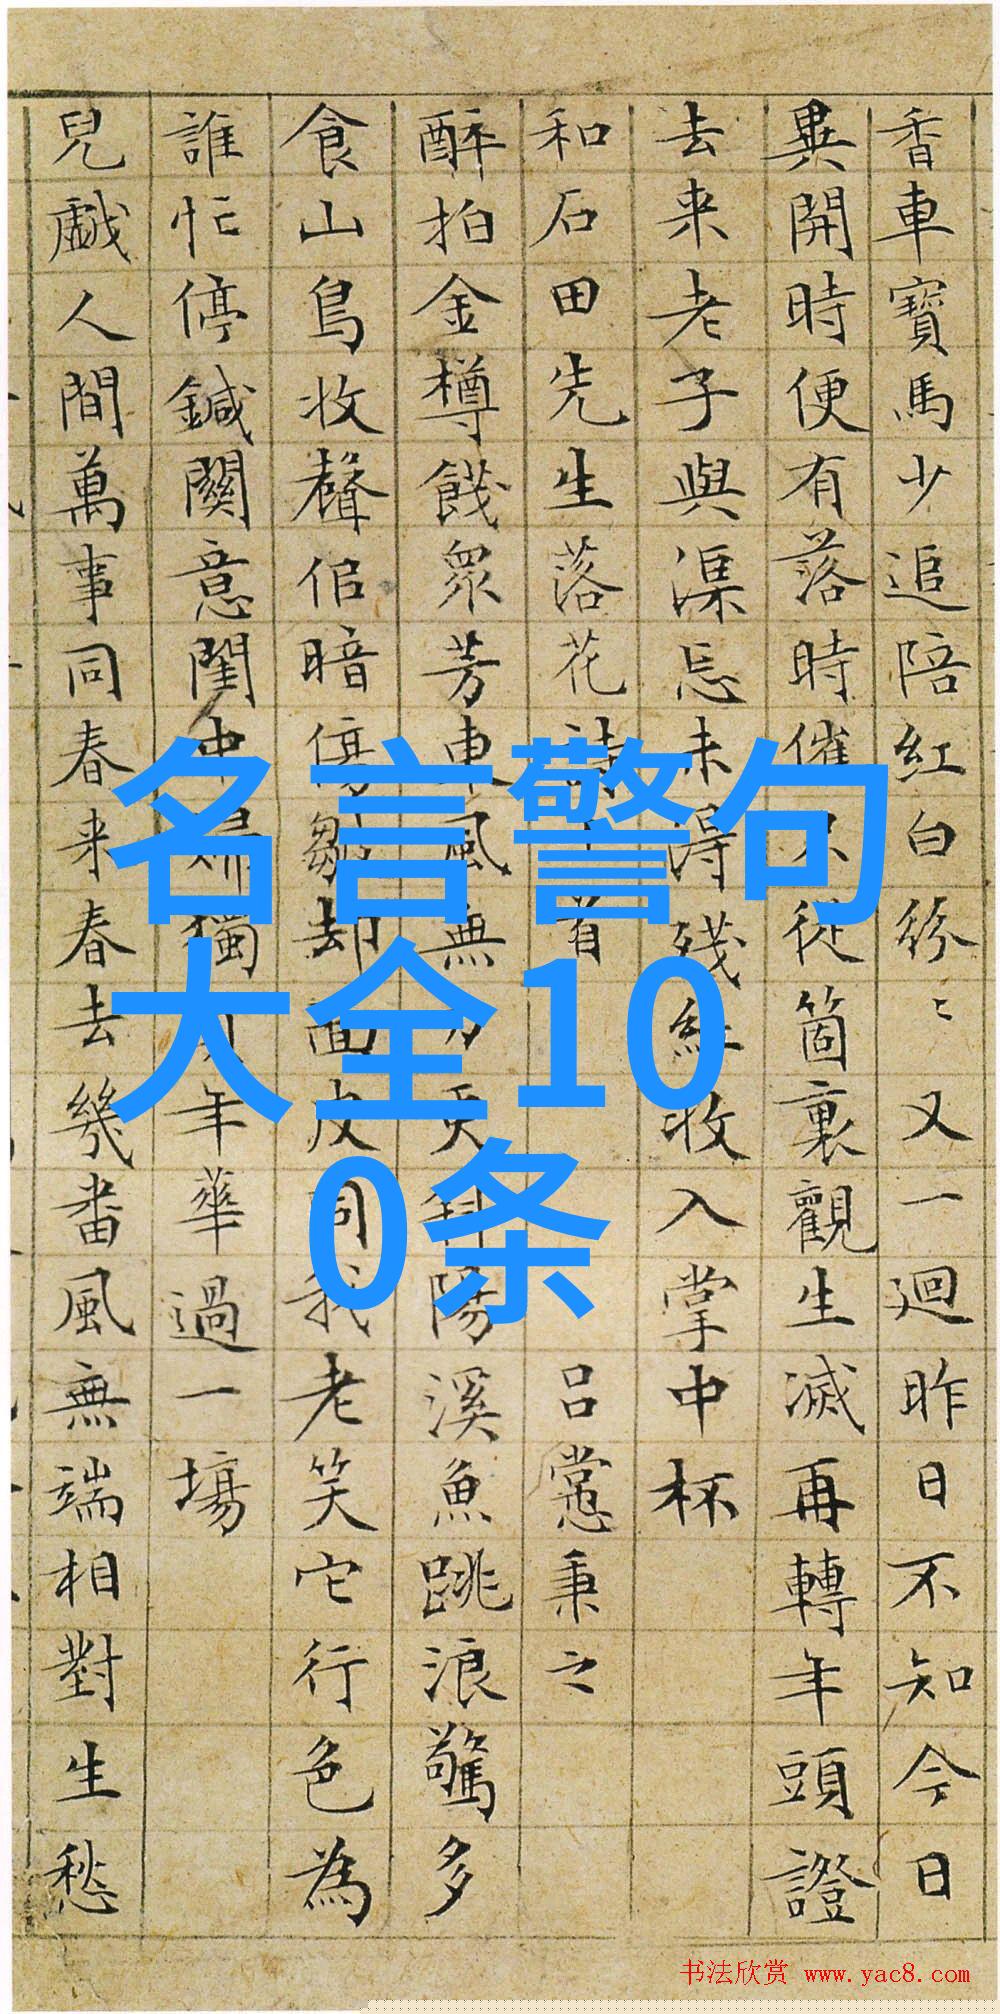 香車寶馬少追陪紅白紛〻又一迴昨日不知今日
異開時便有落時催只從箇裏觀生滅再轉年頭證
去来老子與渠忘未得殘紅收入掌中杯
和石田先生落花詩十首
吕㦂秉之
醉拍金樽餞眾芳東風無力天斜陽溪魚跳浪驚多
食山鳥收聲倌暗傷鄒却面皮同我老笑它行色為
誰忙停鍼關意閨中婦獨年華過一場
兒戲人間萬事同春来春去幾番風無端相對生愁
名言警句
大全10
0条
书法欣赏 www.yac8.com